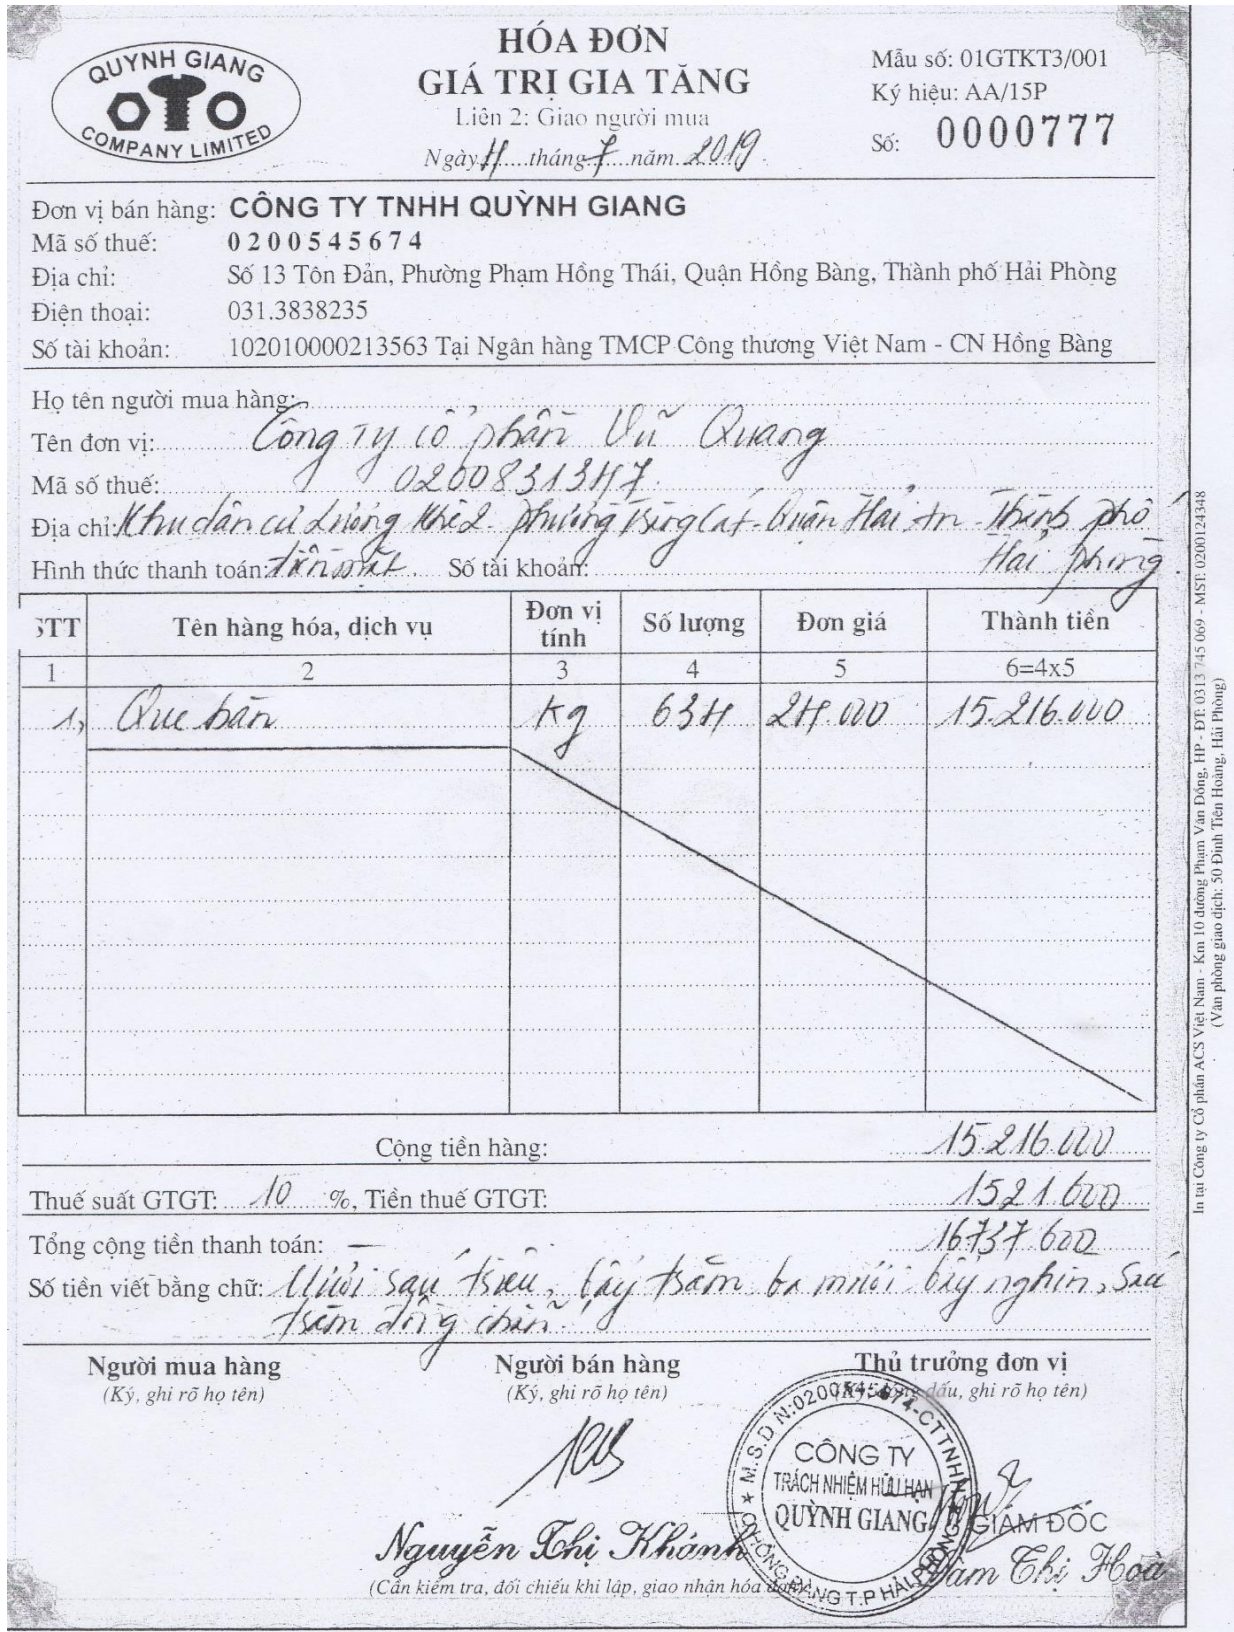 QUYNH GIANG
COMPANY LIMITED
HÓA ĐƠN
GIÁ TRỊ GIA TĂNG
Liên 2: Giao người mua
Ngày 4 tháng 7 năm 2019
Mẫu số: 01GTKT3/001
Ký hiệu: AA/15P
Số: 0000777
Đơn vị bán hàng: CÔNG TY TNHH QUỲNH GIANG
Mã số thuế: 0200545674
Địa chỉ: Số 13 Tôn Đản, Phường Phạm Hồng Thái, Quận Hồng Bàng, Thành phố Hải Phòng
Điện thoại: 031.3838235
Số tài khoản: 102010000213563 Tại Ngân hàng TMCP Công thương Việt Nam - CN Hồng Bàng
Họ tên người mua hàng:
Tên đơn vị: Công ty cổ phần Vũ Quang
Mã số thuế: 0200831347
Địa chỉ: Khu dân cư Lương Khê 2 - phường Tràng Cát - Quận Hải An - Thành phố
Hải phòng
Hình thức thanh toán: tiền mặt. Số tài khoản:
STT Tên hàng hóa, dịch vụ Đơn vị tính Số lượng Đơn giá Thành tiền
1 2 3 4 5 6=4x5
1, Que hàn Kg 634 24.000 15.216.000
Cộng tiền hàng: 15.216.000
Thuế suất GTGT: 10 %, Tiền thuế GTGT: 1521.600
Tổng cộng tiền thanh toán: 16737.600
Số tiền viết bằng chữ: Mười sáu triệu, bảy trăm ba mươi bảy nghìn, sáu
trăm đồng chẵn.
Người mua hàng
(Ký, ghi rõ họ tên)
Người bán hàng
(Ký, ghi rõ họ tên)
Nguyễn Thị Khánh
Thủ trưởng đơn vị
dấu, ghi rõ họ tên)
M.S.D N:0200545674-C.T.T.N.H.H
CÔNG TY
TRÁCH NHIỆM HỮU HẠN
QUỲNH GIANG
HỒNG BÀNG T.P HẢI PHÒNG
GIÁM ĐỐC
Đàm Thị Hoà
(Cần kiểm tra, đối chiếu khi lập, giao nhận hóa đơn)
In tại Công ty Cổ phần ACS Việt Nam - Km 10 đường Phạm Văn Đồng, HP - ĐT: 0313 745 069 - MST: 0200124348
(Văn phòng giao dịch: 50 Đinh Tiên Hoàng, Hải Phòng)